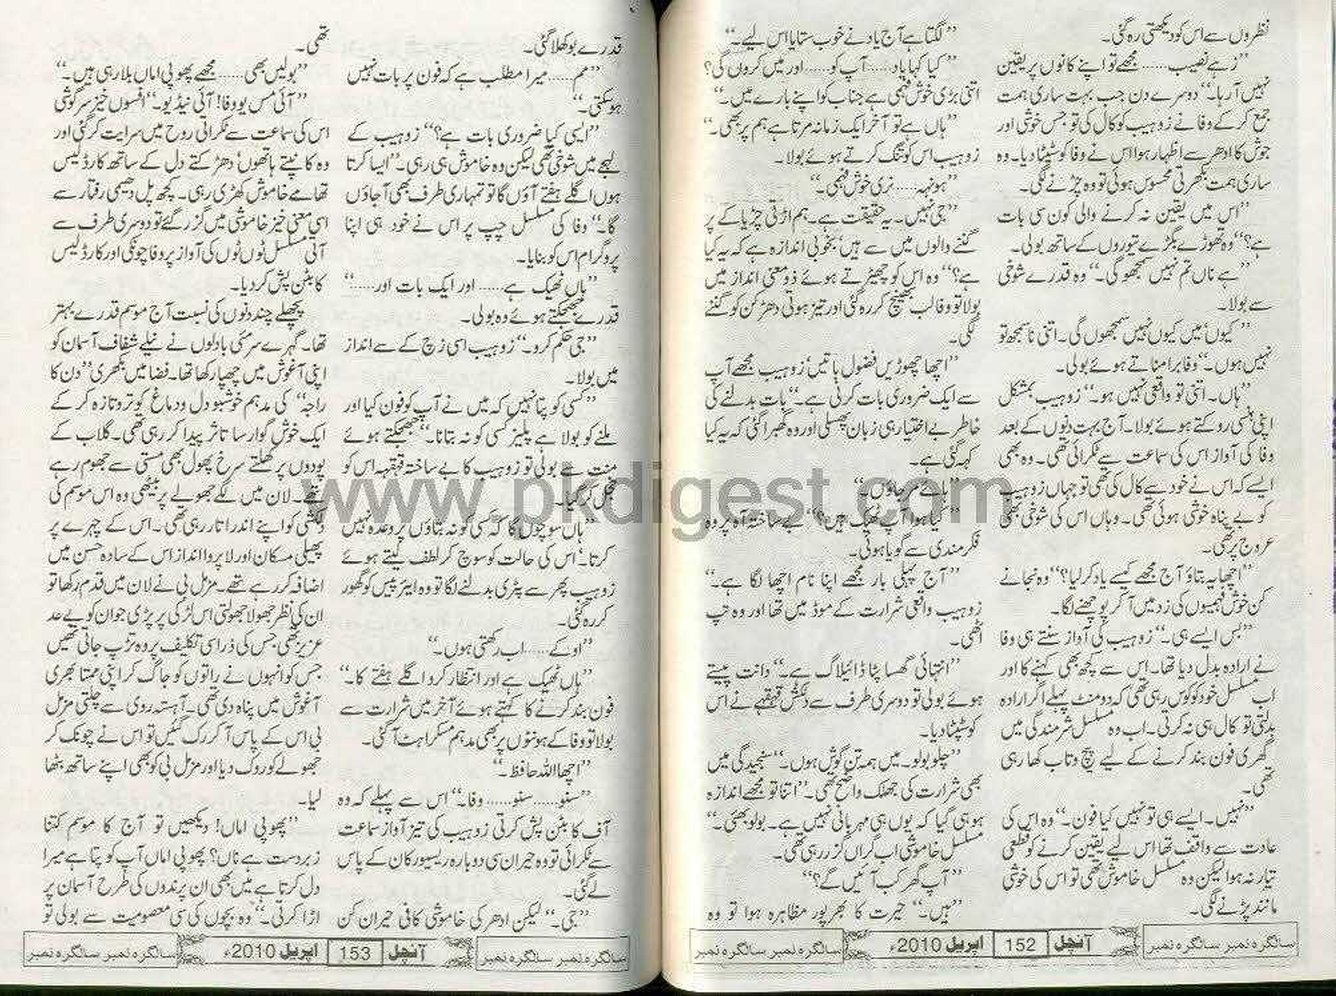 نظروں سے اس کو دیکھتی رہ گئی۔
”زہے نصیب...... مجھے تو اپنے کانوں پر یقین
نہیں آ رہا۔“ دوسرے دن جب بہت ساری ہمت
جمع کر کے وفا نے زوہیب کو کال کی تو جس خوشی اور
جوش کا ادھر سے اظہار ہوا اس نے وفا کو سٹپٹا دیا۔ وہ
ساری ہمت بکھرتی محسوس ہوئی تو وہ چڑنے لگی۔
”اس میں یقین نہ کرنے والی کون سی بات
ہے؟“ وہ تھوڑے بگڑے تیوروں کے ساتھ بولی۔
”ہے ناں تم نہیں سمجھو گی۔“ وہ قدرے شوخی
سے بولا۔
”کیوں! میں کیوں نہیں سمجھوں گی۔ اتنی ناسمجھ تو
نہیں ہوں۔“ وفا برا مناتے ہوئے بولی۔
”ہاں۔ اتنی تو واقعی نہیں ہو۔“ زوہیب بمشکل
اپنی ہنسی روکتے ہوئے بولا۔ آج بہت دنوں کے بعد
وفا کی آواز اس کی سماعت سے ٹکرائی تھی۔ وہ بھی
ایسے کہ اس نے خود سے کال کی تھی تو جہاں زوہیب
کو بے پناہ خوشی ہوئی تھی۔ وہاں اس کی شوخی بھی
عروج پر تھی۔
”اچھا یہ بتاؤ آج مجھے کیسے یاد کر لیا؟“ وہ نجانے
کن خوش فہمیوں کی زد میں آ کر پوچھنے لگا۔
”بس ایسے ہی۔“ زوہیب کی آواز سنتے ہی وفا
نے ارادہ بدل دیا تھا۔ اس سے کچھ بھی کہنے کا اور
اب مسلسل خود کو کوس رہی تھی کہ دو منٹ پہلے اگر ارادہ
بدلتی تو کال ہی نہ کرتی۔ اب وہ مسلسل شرمندگی میں
گھری فون بند کرنے کے لیے پیچ و تاب کھا رہی
تھی۔
”نہیں۔ ایسے ہی تو نہیں کیا فون۔“ وہ اس کی
عادت سے واقف تھا اس لیے یقین کرنے کو قطعی
تیار نہ ہوا لیکن وہ مسلسل خاموش تھی تو اس کی خوشی
مانند پڑنے لگی۔
”لگتا ہے آج یاد نے خوب ستایا اس لیے۔“
”کیا کہا یاد...... آپ کو...... اور میں کروں گی؟
اتنی بڑی خوش فہمی ہے جناب کو اپنے بارے میں۔“
”ہاں ہے تو آخر ایک زمانہ مرتا ہے ہم پر بھی۔“
زوہیب اس کو تنگ کرتے ہوئے بولا۔
”ہونہہ...... نری خوش فہمی۔“
”جی نہیں۔ یہ حقیقت ہے۔ ہم اڑتی چڑیا کے پر
گننے والوں میں سے ہیں! بخوبی اندازہ ہے کہ یہ کیا
ہے؟“ وہ اس کو چھیڑتے ہوئے ذومعنی انداز میں
بولا تو وفا لب بھینچ کر رہ گئی اور تیز ہوتی دھڑکن کو گننے
لگی۔
”اچھا چھوڑیں فضول باتیں! زوہیب مجھے آپ
سے ایک ضروری بات کرنی ہے۔“ بات بدلنے کی
خاطر بے اختیار ہی زبان پھسلی اور وہ گھبرا گئی کہ یہ کیا
کہہ گئی ہے۔
”ہائے مر جاؤں۔“
”کیا ہوا آپ ٹھیک ہیں؟“ بے ساختہ آہ پر وہ
فکرمندی سے گویا ہوئی۔
”آج پہلی بار مجھے اپنا نام اچھا لگا ہے۔“
زوہیب واقعی شرارت کے موڈ میں تھا اور وہ تپ
اٹھی۔
”انتہائی گھسا پٹا ڈائیلاگ ہے۔“ دانت پیستے
ہوئے بولی تو دوسری طرف سے دلکش قہقہے نے اس
کو سٹپٹا دیا۔
”چلو بولو۔ میں ہمہ تن گوش ہوں۔“ سنجیدگی میں
بھی شرارت کی جھلک واضح تھی۔ ”اتنا تو مجھے اندازہ
ہو ہی گیا کہ یوں ہی مہربانی نہیں ہے۔ بولو بھئی۔“
مسلسل خاموشی اب گراں گزر رہی تھی۔
”آپ گھر کب آئیں گے؟“
”ہیں۔“ حیرت کا بھرپور مظاہرہ ہوا تو وہ
سالگرہ نمبر سالگرہ نمبر آنچل 152 اپریل 2010ء سالگرہ نمبر سالگرہ نمبر
قدرے بوکھلا گئی۔
”مم...... میرا مطلب ہے کہ فون پر بات نہیں
ہو سکتی۔“
”ایسی کیا ضروری بات ہے؟“ زوہیب کے
لہجے میں شوخی تھی لیکن وہ خاموش ہی رہی۔ ”ایسا کرتا
ہوں اگلے ہفتے آؤں گا تو تمہاری طرف بھی آ جاؤں
گا۔“ وفا کی مسلسل چپ پر اس نے خود ہی اپنا
پروگرام اس کو بتایا۔
”ہاں ٹھیک ہے...... اور ایک بات اور......“
قدرے جھجکتے ہوئے وہ بولی۔
”جی حکم کرو۔“ زوہیب اسی زچ کے سے انداز
میں بولا۔
”کسی کو پتا نہیں کہ میں نے آپ کو فون کیا اور
ملنے کو بولا ہے پلیز کسی کو نہ بتانا۔“ جھجکتے ہوئے
منت سے بولی تو زوہیب کا بے ساختہ قہقہہ اس کو
خجل کر گیا۔
”ہاں سوچوں گا کہ کسی کو نہ بتاؤں پر وعدہ نہیں
کرتا۔“ اس کی حالت کو سوچ کر لطف لیتے ہوئے
زوہیب پھر سے پٹری بدلنے لگا تو وہ ایئر پیس کو گھور
کر رہ گئی۔
”اوکے...... اب رکھتی ہوں۔“
”ہاں ٹھیک ہے اور انتظار کرو اگلے ہفتے کا۔“
فون بند کرنے کا کہتے ہوئے آخر میں شرارت سے
بولا تو وفا کے ہونٹوں پر بھی مدہم مسکراہٹ آ گئی۔
”اچھا اللہ حافظ۔“
”سنو...... سنو...... وفا۔“ اس سے پہلے کہ وہ
آف کا بٹن پش کرتی زوہیب کی تیز آواز سماعت
سے ٹکرائی تو وہ حیران سی دوبارہ ریسیور کان کے پاس
لے گئی۔
”جی۔“ لیکن ادھر کی خاموشی کافی حیران کن
تھی۔
”بولیں بھی...... مجھے پھوپی اماں بلا رہی ہیں۔“
”آئی مس یو وفا! آئی نیڈ یو۔“ افسوں خیز سرگوشی
اس کی سماعت سے ٹکراتی روح میں سرایت کر گئی اور
وہ کانپتے ہاتھوں! دھڑکتے دل کے ساتھ کارڈلیس
تھامے خاموش کھڑی رہی۔ کچھ پل دھیمی رفتار سے
اسی معنی خیز خاموشی میں گزر گئے تو دوسری طرف سے
آتی مسلسل ٹوں ٹوں کی آواز پر وفا چونکی اور کارڈلیس
کا بٹن پش کر دیا۔
پچھلے چند دنوں کی نسبت آج موسم قدرے بہتر
تھا۔ گہرے سرمئی بادلوں نے نیلے شفاف آسمان کو
اپنی آغوش میں چھپا رکھا تھا۔ فضا میں بکھری ”دن کا
راجہ“ کی مدہم خوشبو دل و دماغ کو تروتازہ کر کے
ایک خوش گوار سا تاثر پیدا کر رہی تھی۔ گلاب کے
پودوں پر کھلتے سرخ پھول بھی مستی سے جھوم رہے
تھے۔ لان میں لگے جھولے پر بیٹھی وہ اس موسم کی
دلکشی کو اپنے اندر اتار رہی تھی۔ اس کے چہرے پر
پھیلی مسکان اور لاپروا انداز اس کے سادہ حسن میں
اضافہ کر رہے تھے۔ مزمل بی نے لان میں قدم رکھا تو
ان کی نظر جھولا جھولتی اس لڑکی پر پڑی جو ان کو بے حد
عزیز تھی جس کی ذرا سی تکلیف پر وہ تڑپ جاتی تھیں
جس کو انہوں نے راتوں کو جاگ کر اپنی ممتا بھری
آغوش میں پناہ دی تھی۔ آہستہ روی سے چلتی مزمل
بی اس کے پاس آ کر رک گئیں تو اس نے چونک کر
جھولے کو روک دیا اور مزمل بی کو بھی اپنے ساتھ بٹھا
لیا۔
”پھوپی اماں! دیکھیں تو آج کا موسم کتنا
زبردست ہے ناں؟ پھوپی اماں آپ کو پتا ہے میرا
دل کرتا ہے میں بھی ان پرندوں کی طرح آسمان پر
اڑا کرتی۔“ وہ بچوں کی سی معصومیت سے بولی تو
سالگرہ نمبر سالگرہ نمبر آنچل 153 اپریل 2010ء سالگرہ نمبر سالگرہ نمبر
www.pkdigest.com